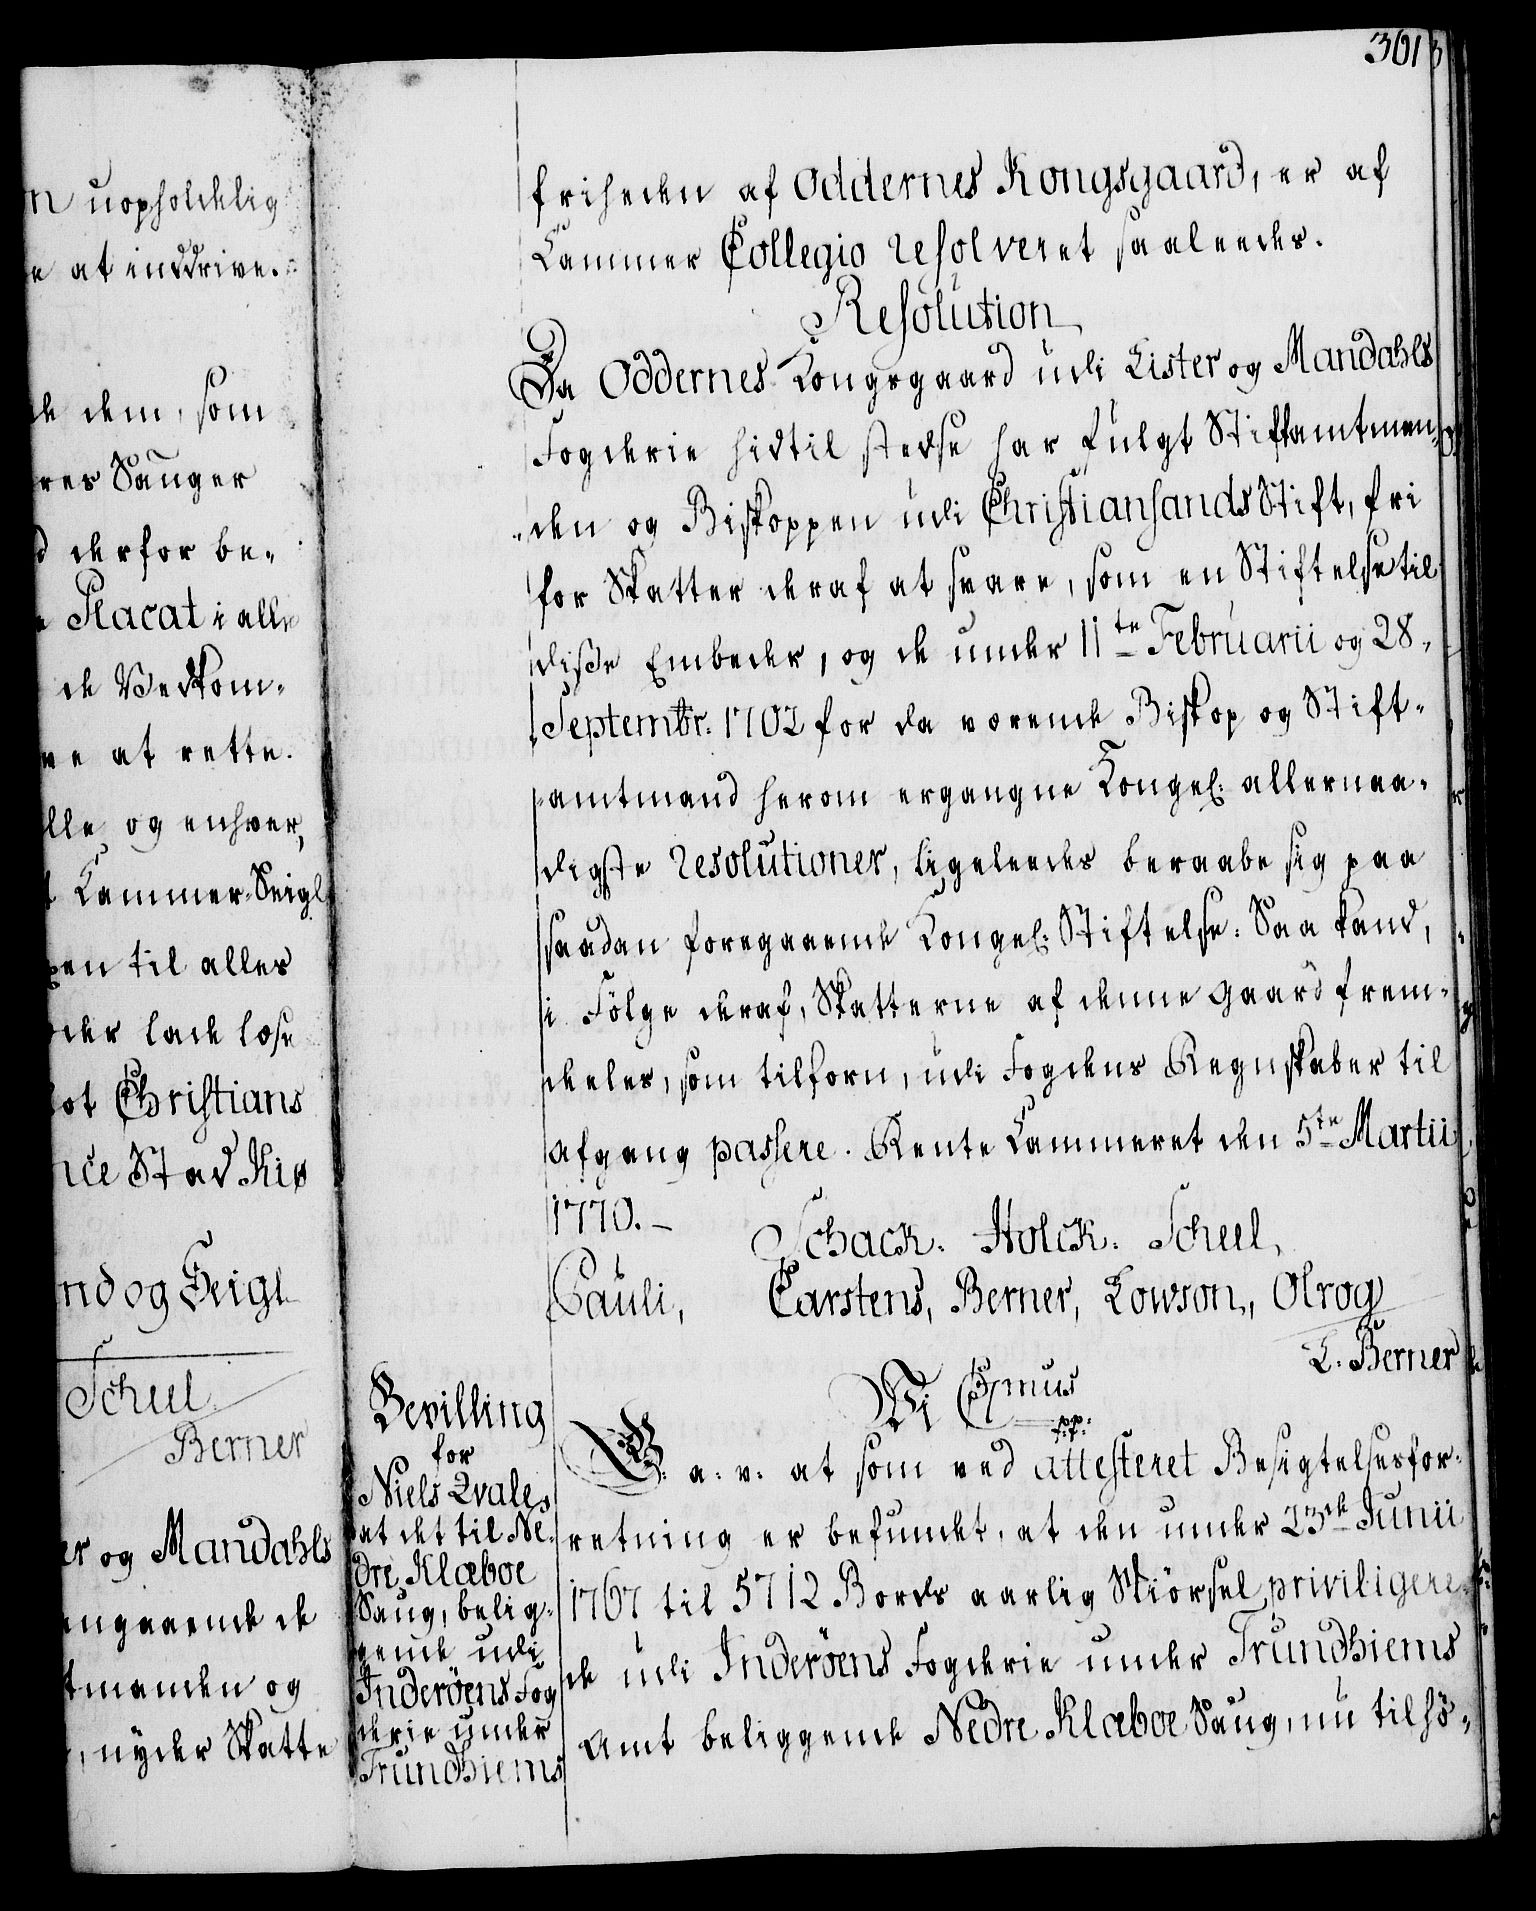 361
n uopholdelig
e at inddrive.
de dem, som
res Sauger
d derfor be-
e Placat i alle
de Vedkom-
ve at rette.
lle og enhver,
t Kammer-Seigl
pen til alles
eder lade læse
ot Christians
nde Stad Kiø
nd og Seigl
Scheel
Berner
er og Mandahls
angaaende de
tmanden og
, nyder Skatte
friheden af Oddernes Kongsgaard, er af
Cammer Collegio resolveret saaledes.
Resolution
Da Oddernes Kongsgaard udi Lister og Mandahls
Fogderie hidtil stedse har fulgt Stiftamtman-
den og Biskoppen udi Christiansands Stift, fri
for Skatter deraf at svare, som en Stiftelse til
disse Embeder, og de under 11te Februarii og 28.
Septembr: 1702 for da værende Biskop og Stift-
amtmand herom ergangne Kongel: allernaa-
digste resolutioner, ligeledes beraabe sig paa
saadan foregaaende Kongel: Stiftelse: Saa kand,
i Fölge deraf, Skatterne af denne gaard frem-
deles, som tilforn, udi Fogdens Regnskaber til
afgang passere. Rente Cammeret den 5te Martii
1770.-
Schack. Holck. Scheel,
Pauli, Carstens, Berner, Lowson, Olrog
L. Berner
Bevilling
for
Niels Qvale,
at det til Ne-
dre Klæboe
Saug, belig-
gende udi
Inderöens Fog
derie under
Trundhiems
Wi Csmus
pp:
G: a. v. at som ved attesteret Besigtelsesfor-
retning er befundet, at den under 23de Junii
1767 til 5712 Bords aarlig Skiörsel priviligere-
de udi Inderöens Fogderie under Trundhiems
Amt beliggende Nedre Klæboe Saug, nu tilhö-